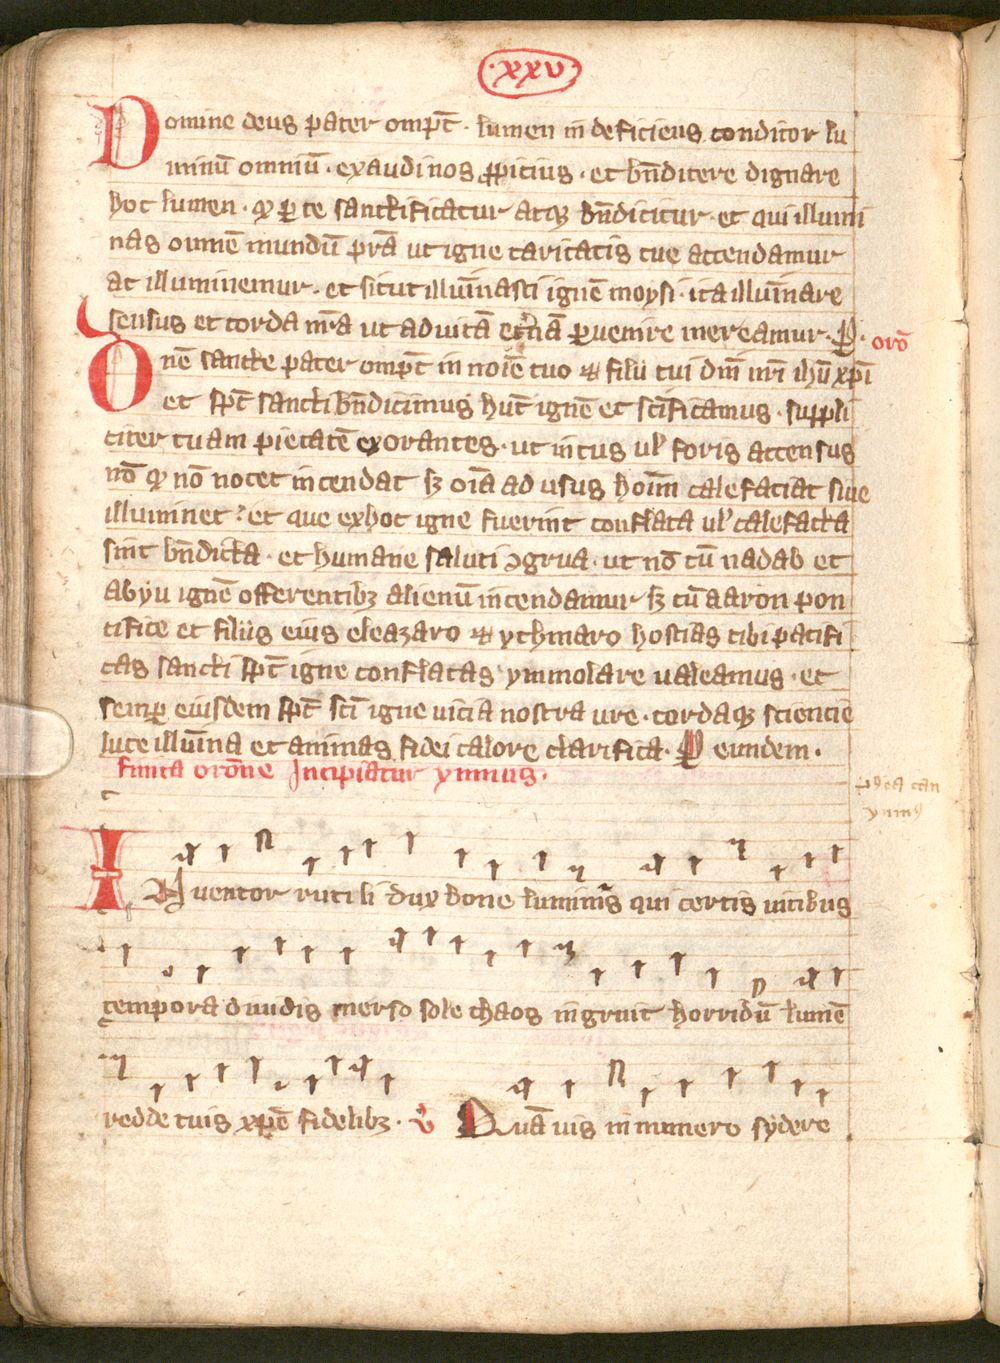 ·xxv·
Domine deus pater omp̄t · lumen indeficiens conditor lu
minū omniū · exaudi nos p̱picius · et bn̄dicere dignare
hoc lumen · qd̓ ꝑ te sanctificatur atqꝫ bn̄dicitur · et qui illumi
nas omnē mundū p̄ra ut igne caritatis tue accendamur
ac illuminemur · et sicut illuīnasti ignē moysi · ita illuīnare
sensus et corda nr̄a ut ad uitā et̓nā ꝑuenire mereamur · P̱ · orō
Dn̄e sancte pater omp̄t in noīe tuo et filii tui dn̄i nr̄i ihū xp̄i
et sp̄c sancti bn̄dicimus hūc ignē et scīficamus · suppli
citer tuam pietatē exorantes · ut intus ul̓ foris accensus
nō qd̓ nō nocet incendat sꝫ oīa ad usus hoīm calefaciat siue
illuminet · et que ex hoc igne fuerint conflata ul̓ calefacta
sint bn̄dicta · et humane saluti ꝯgrua · ut nō cū nadab et
abyu ignē offerentibꝫ alienū incendamur sꝫ cū aaron pon
tifice et filiis eius eleazaro et ythmaro hostias tibi pacifi
cas sancti sp̄c igne conflatas ymmolare ualeamus · et
semꝑ eiusdem sp̄c scī igne uicia nostra ure · cordaqꝫ sciencie
luce illuīna et animas fidei calore clarifica · P̱ eundem ·
finita or̄one Incipiatur ymnus ·
ymn⁹
Inuentor rutili dux bone luminis qui certis uicibus
tempora diuidis merso sole chaos ingruit horridū lumē
redde tuis xp̄e fidelibꝫ · v̓ Quāuis innumero sydere